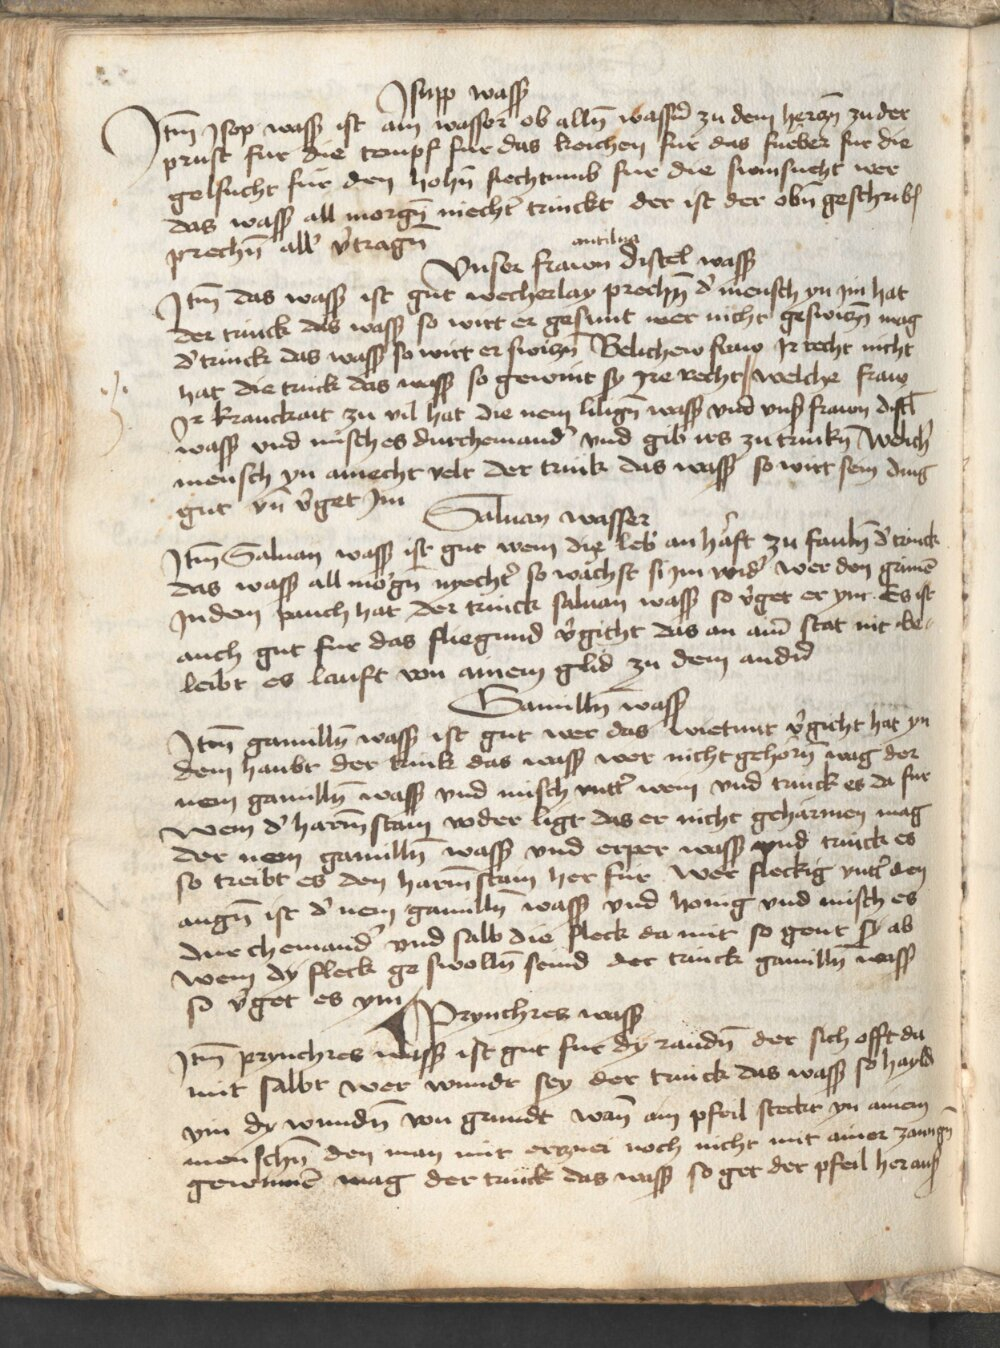 Isupp wass
Itm Isop wass ist ain wasser ob alln wassern zu dem herczn zu der
prust fur die tempf fur das keichen fur das fueber fur die
gelsucht fur den hohn siechtumb fur die sucht wer
das wass all morgn niechtr trinckt der ist der obn geschribn
prechn all vertragn
Vnser frawen distel wass
Itm das wass ist gut wecherlay prechn der mensch yn im hat
der trinck das wass so wirt er gesunt wer nicht geswiczn mag
der trinck das wass so wirt er swiczn Belichew fraw Ir recht nicht
hat die trinck das wass so gewint sy Ire recht / welche fraw
Ir kranckait zu vil hat die nem lilign wass vnd vnser frawn distl
wass vnd misch es durcheinander vnd gib irs zu trinkn Welicher
mensch yn amecht velt der trink das wass so wirt sein ding
gut vnd verget Im
Saluan wasser
Itm Saluan wass ist gut wem die leber anhaft zu fauln der trinck
das wass all morgn nyechtr so wachst si im wider wer den grimen
In dem pauch hat der trinck saluan wass so verget er ym Es ist
auch gut fur das fliegund vergicht das an aim stat nit be-
leibt es lauft von ainem glid zu dem andern
Gamilln wass
Itm gamilln wass ist gut wer das wietunt vergicht hat yn
dem haubt der trink das wass wer nicht gehorn mag der
nem gamilln wass vnd misch vnter wein vnd trinck es da fur
Wem der harmstain vnder ligt das er nicht geharmen mag
der nem gamilln wass vnd wass vnd trinck es
so treibt es den harmstain her fur Wer fleckig vnter den
augn ist der nem gamilln wass vnd honig vnd misch es
durcheinander vnd salb die fleck da mit so gent sy ab
Wem dy fleck geswolln seind der trinck gamilln wass
so verget es ym
Prynchres wass
Itm prynchres wass ist gut fur dy raudn der sich offt da
mit salbt wer wundt sey der trinck das wass so haylt
ym dy wundn von grundt wan ain pfeil steckt yn ainem
menschn den man mit erczney noch nicht mit ainer zangn
gewinnen mag der trinck das wass so get der pfeil heraus